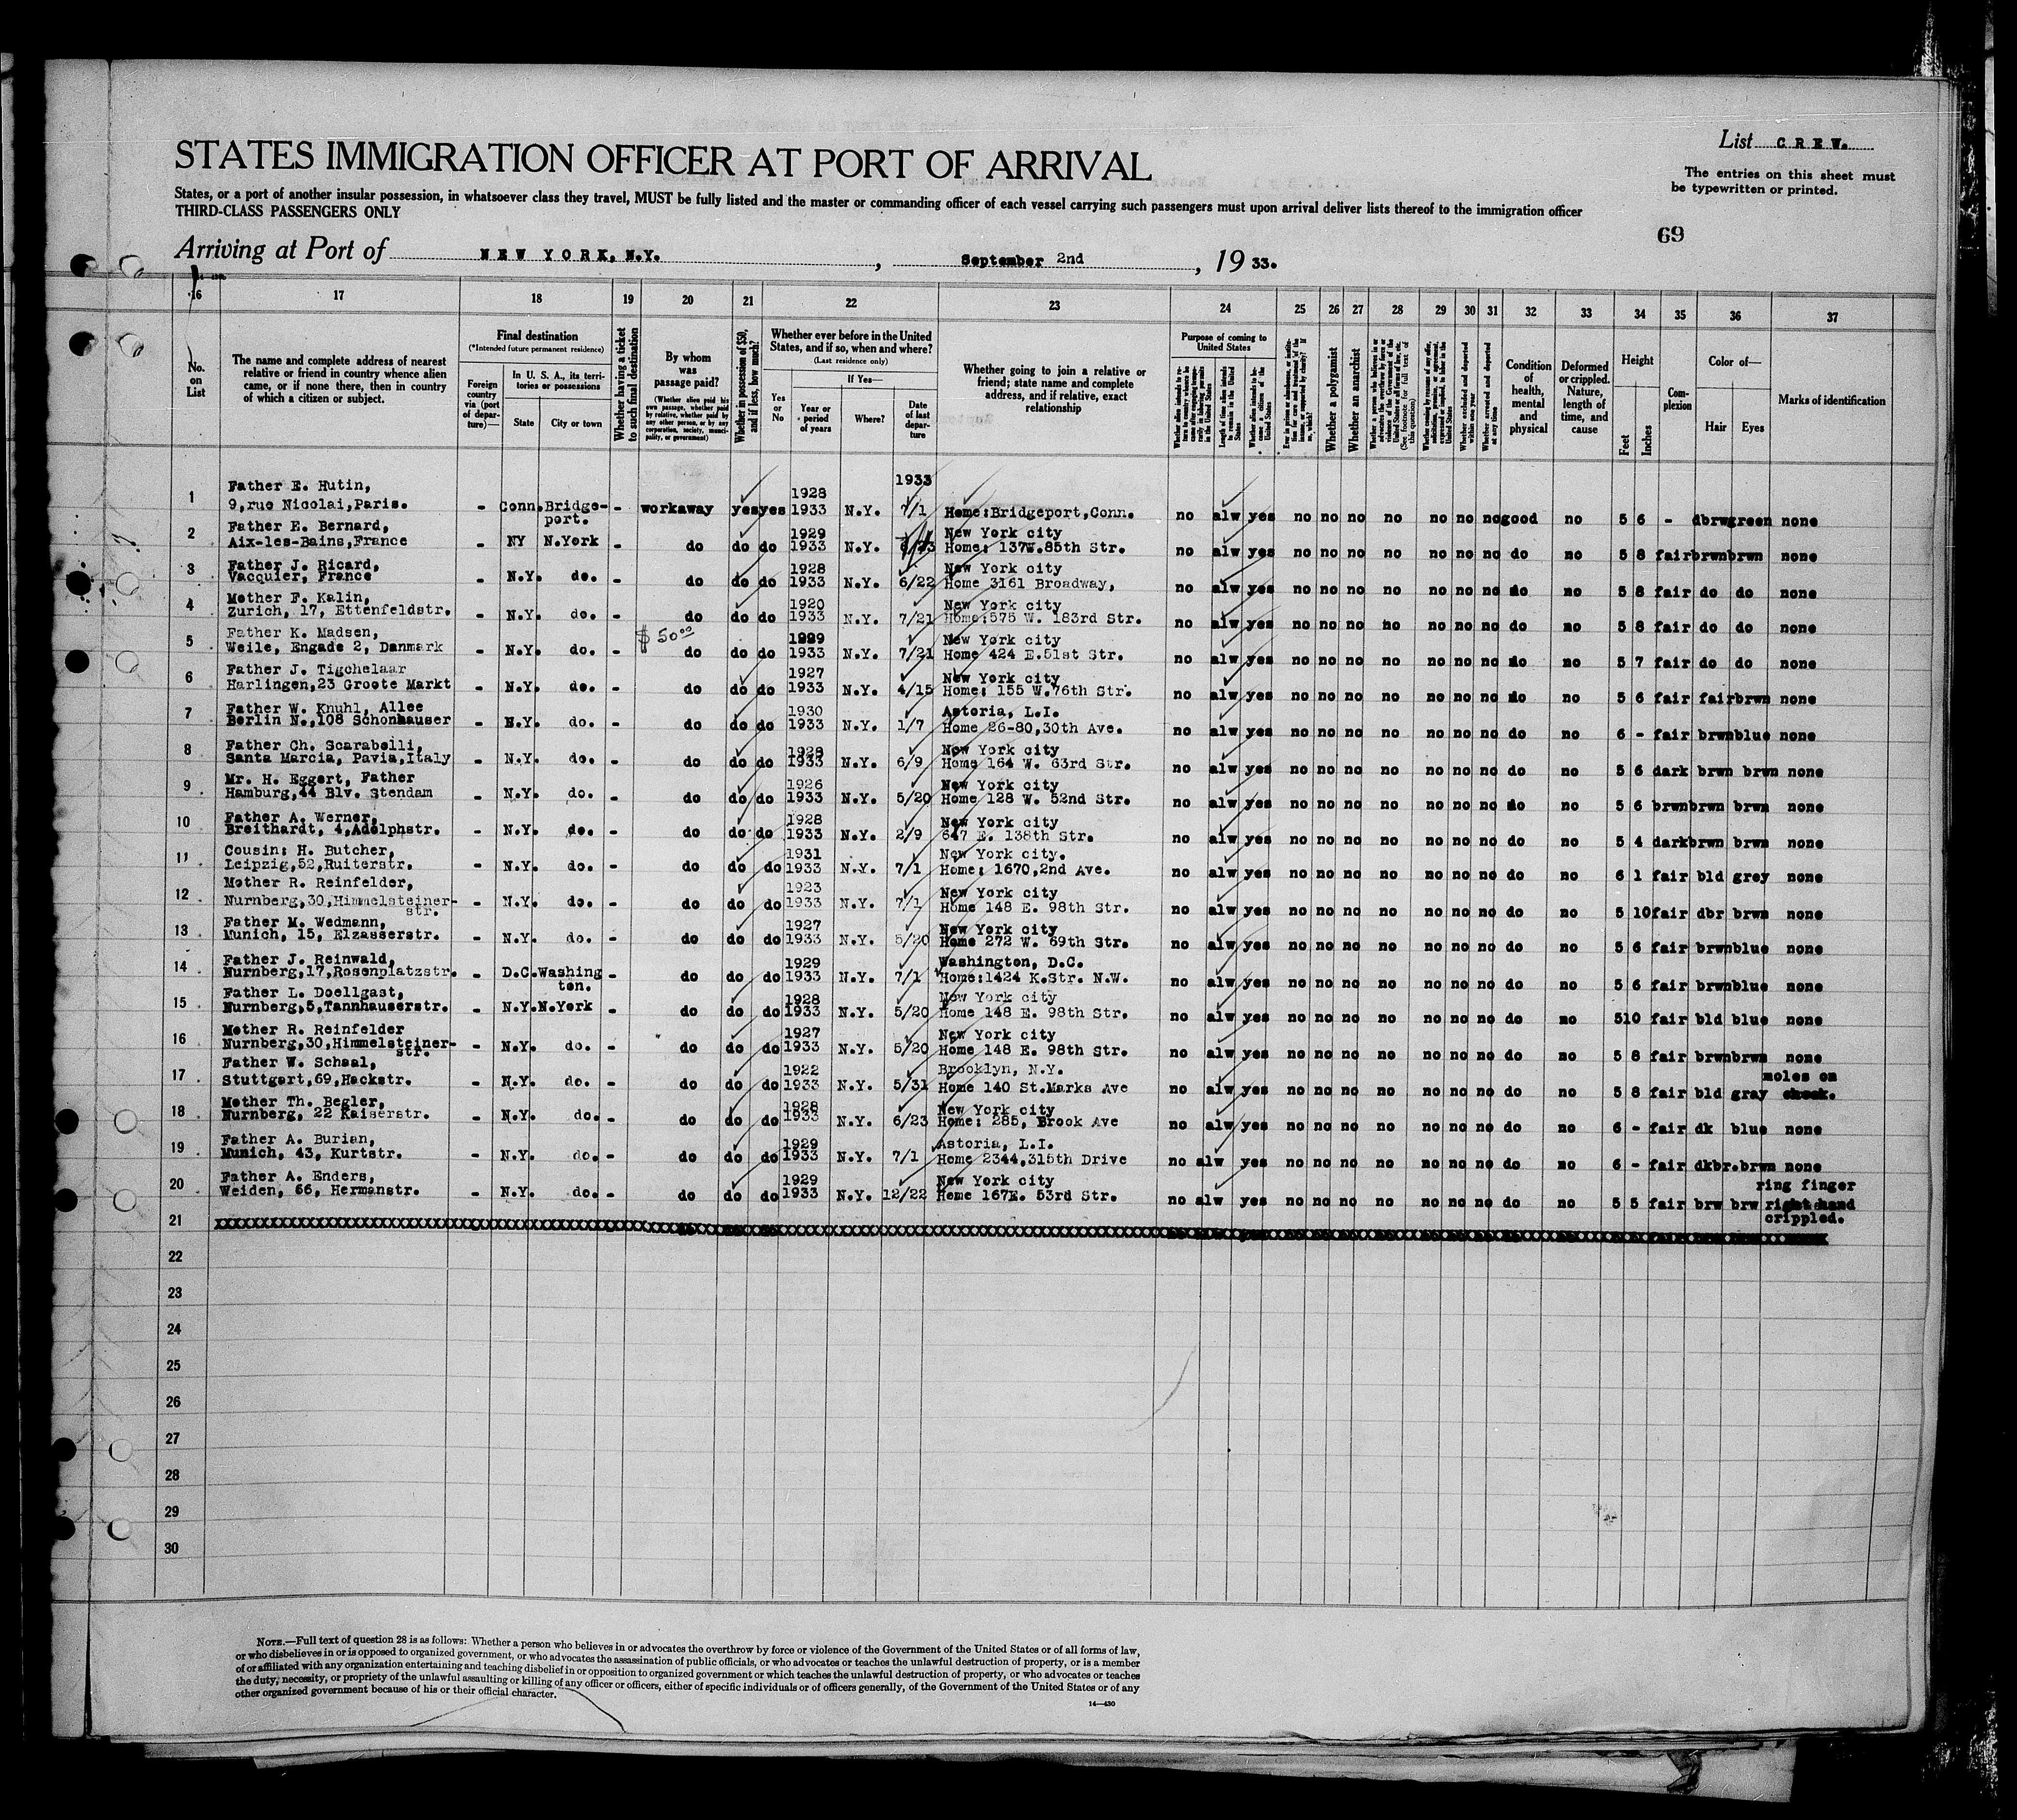 List CREW.
STATES IMMIGRATION OFFICER AT PORT OF ARRIVAL
The entries on this sheet must
be typewritten or printed.
States, or a port of another insular possession, in whatsoever class they travel, MUST be fully listed and the master or commanding officer of each vessel carrying such passengers must upon arrival deliver lists thereof to the immigration officer
THIRD-CLASS PASSENGERS ONLY
69
Arriving at Port of NEW YORK, N.Y. , September 2nd , 19 33.
16 17 18 19 20 21 22 23 24 25 26 27 28 29 30 31 32 33 34 35 36 37
No. on List
The name and complete address of nearest relative or friend in country whence alien came, or if none there, then in country of which a citizen or subject.
Final destination
(*Intended future permanent residence)
Foreign country via (port of departure)—
In U. S. A., its territories or possessions
State City or town
Whether having a ticket to such final destination
By whom was passage paid?
(Whether alien paid his own passage, whether paid by relative, whether paid by any other person, or by any corporation, society, municipality, or government)
Whether in possession of $50, and if less, how much?
Whether ever before in the United States, and if so, when and where?
(Last residence only)
If Yes—
Yes or No
Year or period of years
Where?
Date of last departure
Whether going to join a relative or friend; state name and complete address, and if relative, exact relationship
Purpose of coming to United States
Whether a polygamist
Whether an anarchist
Condition of health, mental and physical
Deformed or crippled. Nature, length of time, and cause
Height
Feet Inches
Complexion
Color of—
Hair Eyes
Marks of identification
1933
1 Father E. Hutin, 1928
9,rue Nicolai,Paris. - Conn. Bridge- - workaway yes yes 1933 N.Y. 7/1 Home:Bridgeport,Conn. no alw yes no no no no no no no good no 5 6 - dbrw green none
port.
2 Father E. Bernard, 1929 New York city
Aix-les-Bains,France - NY N.York - do do do 1933 N.Y. Home: 137W.85th Str. no alw yes no no no no no no no do no 5 8 fair brwn brwn none
3 Father J. Ricard, 1928 New York city
Vacquier, France - N.Y. do. - do do do 1933 N.Y. 6/22 Home 3161 Broadway, no alw yes no no no no no no no do no 5 8 fair do do none
4 Mother F. Kalin, 1920 New York city
Zurich, 17, Ettenfeldstr. - N.Y. do. - do do do 1933 N.Y. 7/21 Home:575 W. 183rd Str. no alw yes no no no no no no no do no 5 8 fair do do none
$ 50.00
5 Father K. Madsen, 1929 New York city
Weile, Engade 2, Danmark - N.Y. do. - do do do 1933 N.Y. 7/21 Home 424 E.51st Str. no alw yes no no no no no no no do no 5 7 fair do do none
6 Father J. Tigchelaar 1927 New York city
Harlingen,23 Groote Markt - N.Y. do. - do do do 1933 N.Y. 4/15 Home: 155 W.76th Str. no alw yes no no no no no no no do no 5 6 fair fair brwn none
7 Father W. Knuhl, Allee 1930 Astoria, L.I.
Berlin N.,108 Schonhauser - N.Y. do. - do do do 1933 N.Y. 1/7 Home 26-80,30th Ave. no alw yes no no no no no no no do no 6 - fair brwn blue none
8 Father Ch. Scarabelli, 1928 New York city
Santa Marcia, Pavia,Italy - N.Y. do. - do do do 1933 N.Y. 6/9 Home 164 W. 63rd Str. no alw yes no no no no no no no do no 5 6 dark brwn brwn none
9 Mr. H. Eggert, Father 1926 New York city
Hamburg,44 Blv. Stendam - N.Y. do. - do do do 1933 N.Y. 5/20 Home 128 W. 52nd Str. no alw yes no no no no no no no do no 5 6 brwn brwn brwn none
10 Father A. Werner, 1928 New York city
Breithardt, 4,Adolphstr. - N.Y. do. - do do do 1933 N.Y. 2/9 647 E. 138th Str. no alw yes no no no no no no no do no 5 4 dark brwn brwn none
11 Cousin: H. Butcher, 1931 New York city.
Leipzig,52,Ruiterstr. - N.Y. do. - do do do 1933 N.Y. 7/1 Home: 1670,2nd Ave. no alw yes no no no no no no no do no 6 1 fair bld grey none
12 Mother R. Reinfelder, 1923 New York city
Nurnberg,30,Himmelsteiner- - N.Y. do. - do do do 1933 N.Y. 7/1 Home 148 E. 98th Str. no alw yes no no no no no no no do no 5 10 fair dbr brwn none
str.
13 Father M. Wedmann, 1927 New York city
Munich, 15, Elzasserstr. - N.Y. do. - do do do 1933 N.Y. 5/20 Home 272 W. 69th Str. no alw yes no no no no no no no do no 5 6 fair brwn blue none
14 Father J. Reinwald, 1929 Washington, D.C.
Nurnberg,17,Rosenplatzstr. - D.C. Washing - do do do 1933 N.Y. 7/1 Home:1424 K.Str. N.W. no alw yes no no no no no no no do no 5 6 fair brwn blue none
ton.
15 Father L. Doellgast, 1928 New York city
Nurnberg,5,Tannhauserstr. - N.Y. N.York - do do do 1933 N.Y. 5/20 Home 148 E. 98th Str. no alw yes no no no no no no no do no 5 10 fair bld blue none
16 Mother R. Reinfelder 1927 New York city
Nurnberg,30,Himmelsteiner- - N.Y. do. - do do do 1933 N.Y. 5/20 Home 148 E. 98th Str. no alw yes no no no no no no no do no 5 8 fair brwn brwn none
str.
17 Father W. Schaal, 1922 Brooklyn, N.Y. moles on
Stuttgart,69,Hackstr. - N.Y. do. - do do do 1933 N.Y. 5/31 Home 140 St.Marks Ave no alw yes no no no no no no no do no 5 8 fair bld gray cheek.
18 Mother Th. Begler, 1928 New York city
Nurnberg, 22 Kaiserstr. - N.Y. do. - do do do 1933 N.Y. 6/23 Home: 285, Brook Ave no alw yes no no no no no no no do no 6 - fair dk blue none
19 Father A. Burian, 1929 Astoria, L.I.
Munich, 43, Kurtstr. - N.Y. do. - do do do 1933 N.Y. 7/1 Home 2344,315th Drive no alw yes no no no no no no no do no 6 - fair dkbr. brwn none
20 Father A. Enders, 1929 New York city ring finger
Weiden, 66, Hermanstr. - N.Y. do. - do do do 1933 N.Y. 12/22 Home 167E. 53rd Str. no alw yes no no no no no no no do no 5 5 fair brw brw right hand
crippled.
21
22
23
24
25
26
27
28
29
30
NOTE.—Full text of question 28 is as follows: Whether a person who believes in or advocates the overthrow by force or violence of the Government of the United States or of all forms of law,
or who disbelieves in or is opposed to organized government, or who advocates the assassination of public officials, or who advocates or teaches the unlawful destruction of property, or is a member
of or affiliated with any organization entertaining and teaching disbelief in or opposition to organized government or which teaches the unlawful destruction of property, or who advocates or teaches
the duty, necessity, or propriety of the unlawful assaulting or killing of any officer or officers, either of specific individuals or of officers generally, of the Government of the United States or of any
other organized government because of his or their official character.
14—430